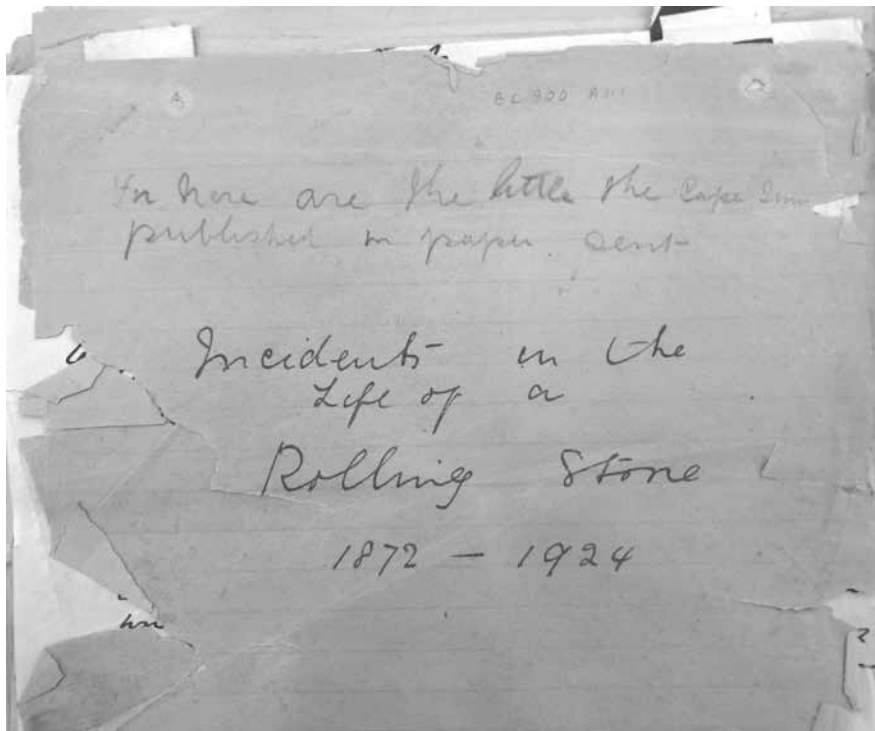 BC 900 A1.1
are the little the Cape
published in paper. sent
Incidents in the
Life of a
Rolling Stone
1872 — 1924